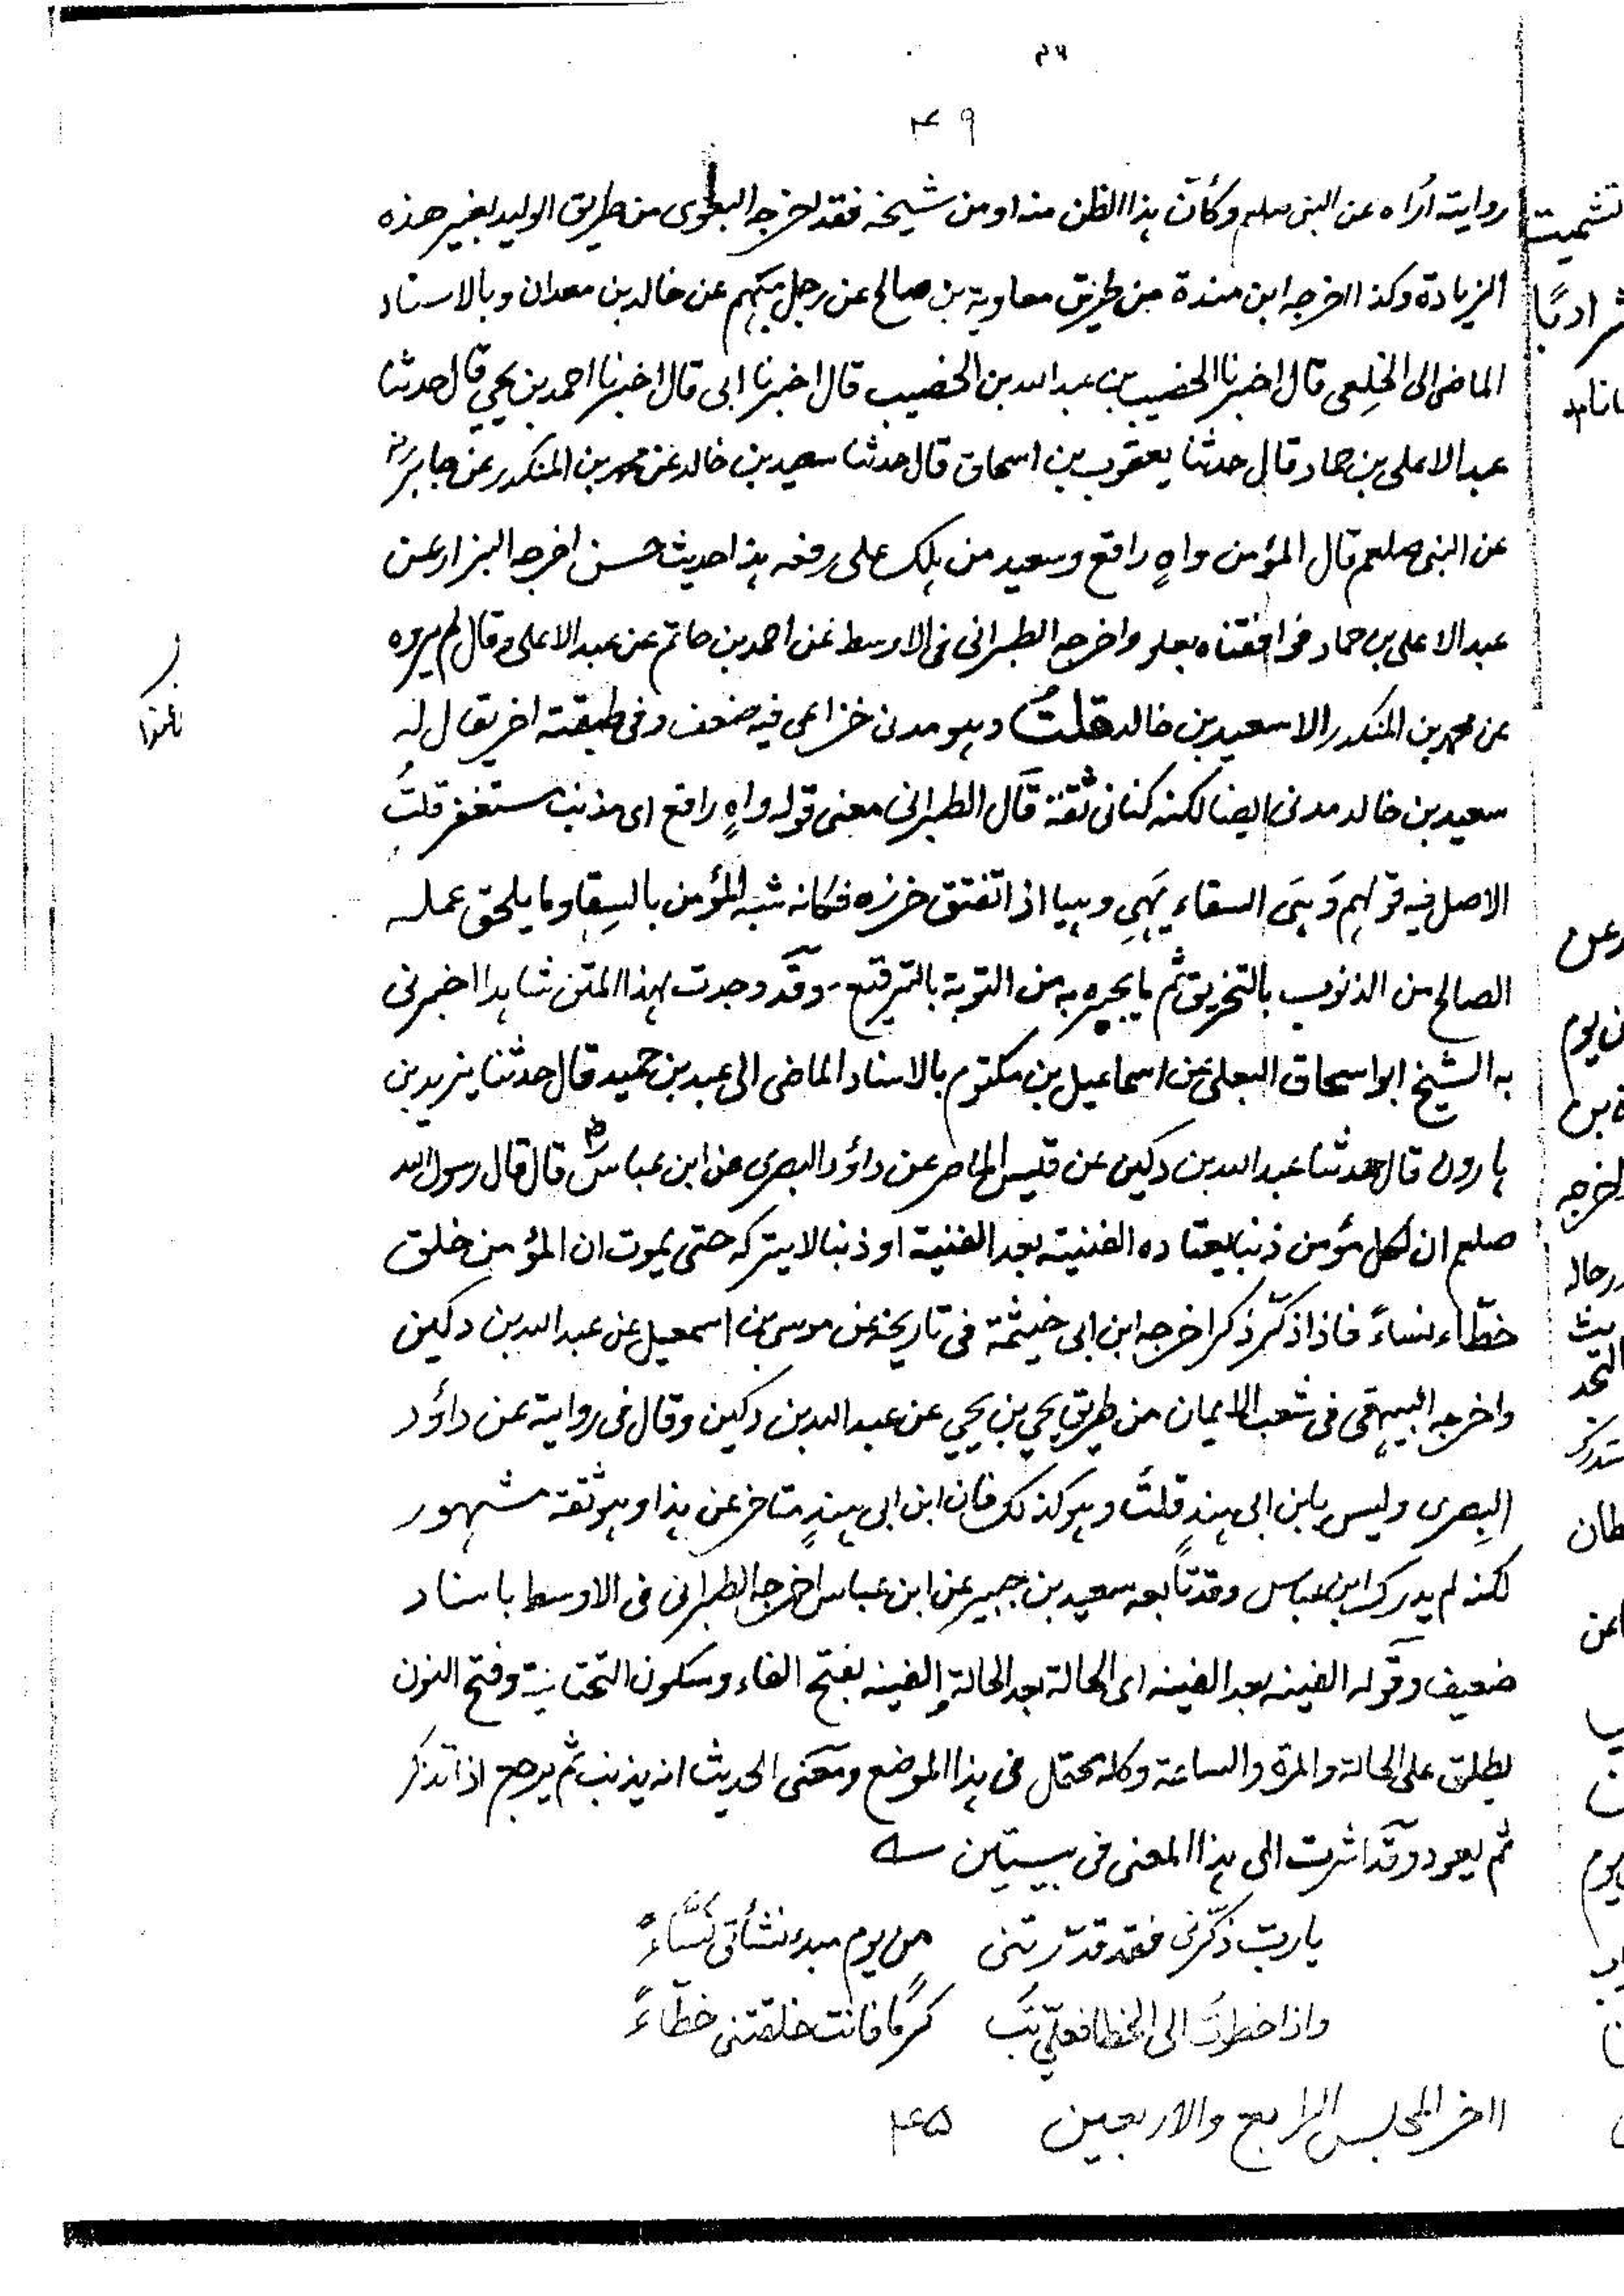 ۴۹
روايته أراه عن النبي صلعم وكأن هذا الظن منه او من شيخه فقد اخرجه البغوى من طريق الوليد بغير هذه
الزيادة وكذا اخرجه ابن مندة من طريق معاوية بن صالح عن رجل مبهم عن خالد بن معدان وبالاسناد
الماضى الى الخلعى قال اخبرنا الخصيب بن عبد الله بن الخصيب قال اخبرنا ابى قال اخبرنا احمد بن يحيى قال حدثنا
عبد الاعلى بن حماد قال حدثنا يعقوب بن اسحاق قال حدثنا سعيد بن خالد عن محمد بن المنكدر عن جابر رض
عن النبى صلعم قال المؤمن واهٍ راقع وسعيد من هلك على رقعه هذا حديث حسن اخرجه البزار عن
عبد الاعلى بن حماد فوافقناه بعلو واخرجه الطبرانى فى الاوسط عن احمد بن حاتم عن عبد الاعلى وقال لم يروه
عن محمد بن المنكدر الا سعيد بن خالد قلتُ وهو مدنى خزاعى فيه ضعف وفى طبقته اخر يقال له
سعيد بن خالد مدنى ايضا لكنه كنانى ثقة قال الطبرانى معنى قوله واهٍ راقع اى مذنب مستغفر قلتُ
الاصل فيه قولهم وَهَى السقاء يَهِى وهيا اذا تفتق خرزه فكانه شبه المؤمن بالسقاء وما يلحق عمله
الصالح من الذنوب بالتخريق ثم ما يجبره به من التوبة بالترقيع - وقد وجدت لهذا المتن شاهدا اخبرنى
به الشيخ ابو اسحاق البعلى عن اسماعيل بن مكتوم بالاسناد الماضى الى عبد بن حميد قال حدثنا يزيد بن
هارون قال حدثنا عبد الله بن دكين عن قيس الماصر عن داؤد البصرى عن ابن عباس رض قال قال رسول الله
صلعم ان لكل مؤمن ذنبا يعتاده الفنية بعد الفنية او ذنبا لا يتركه حتى يموت ان المؤمن خلق
خطّاء نساءً فاذا ذكّر ذكر اخرجه ابن ابى خيثمة فى تاريخه عن موسى بن اسمعيل عن عبد الله بن دكين
واخرجه البيهقى فى شعب الايمان من طريق يحيى بن يحيى عن عبد الله بن دكين وقال فى رواية عن داؤد
البصرى وليس بابن ابى هندٍ قلتُ وهو كذلك فان ابن ابى هندٍ متاخر عن هذا وهو ثقة مشهور
لكنه لم يدرك ابن عباس وقد تابعه سعيد بن جبير عن ابن عباس اخرجه الطبرانى فى الاوسط باسناد
ضعيف وقوله الفينه بعد الفينه اى الحالة بعد الحالة والفينه بفتح الفاء وسكون التحتانية وفتح النون
يطلق على الحالة والمرة والساعة وكله محتمل فى هذا الموضع ومعنى الحديث انه يذنب ثم يرجع اذا تذكر
ثم يعود وقد اشرت الى هذا المعنى فى بيتين
يا ربّ ذكّرنى فقد قدّرتنى من يوم مبدء نشأتى نَسَّاءً
واذا خطوتُ الى الخطا فعلىّ تب كرمًا فانت خلقتنى خطّاءً
اخر المجلس الرابع والاربعين ۴۵